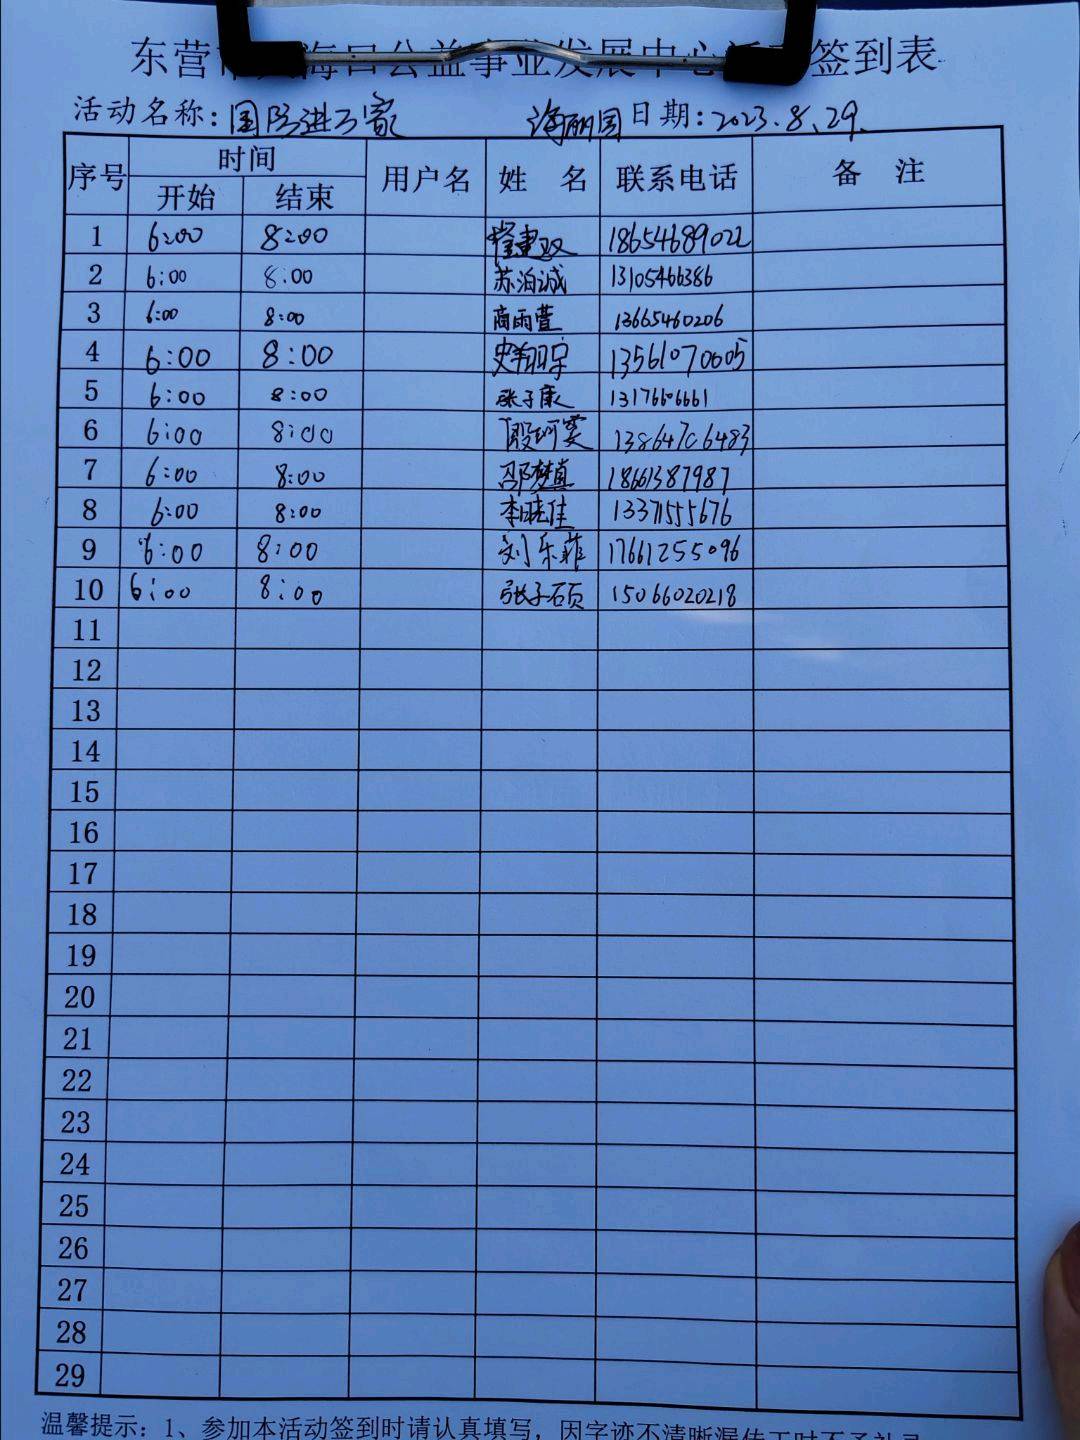 东营市 海口公益事业发展中心活动签到表
活动名称：国防进万家 海丽园 日期：2023.8.29.
序号 时间 用户名 姓 名 联系电话 备 注
开始 结束
1 6:00 8:00 18654689022
2 6:00 8:00 苏泊诚 13105466386
3 6:00 8:00 商雨萱 13665460206
4 6:00 8:00 13561070005
5 6:00 8:00 张子康 13176606661
6 6:00 8:00 13864706483
7 6:00 8:00 邵梦真 18661387987
8 6:00 8:00 李晓佳 13371555676
9 6:00 8:00 刘乐菲 17661255096
10 6:00 8:00 张子硕 15066020218
11
12
13
14
15
16
17
18
19
20
21
22
23
24
25
26
27
28
29
温馨提示：1、参加本活动签到时请认真填写，因字迹不清晰漏传工时不予补录